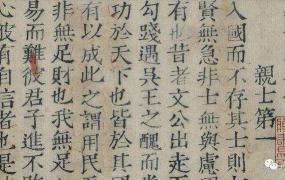 親士第一
入國而不存其士則
賢無急非士無與慮
有也昔者文公出走
勾踐遇吳王之醜而
功於天下也皆於其
有以成此之謂用民
非無足財也我無足
易而難彼君子進不
心彼有自信者也是